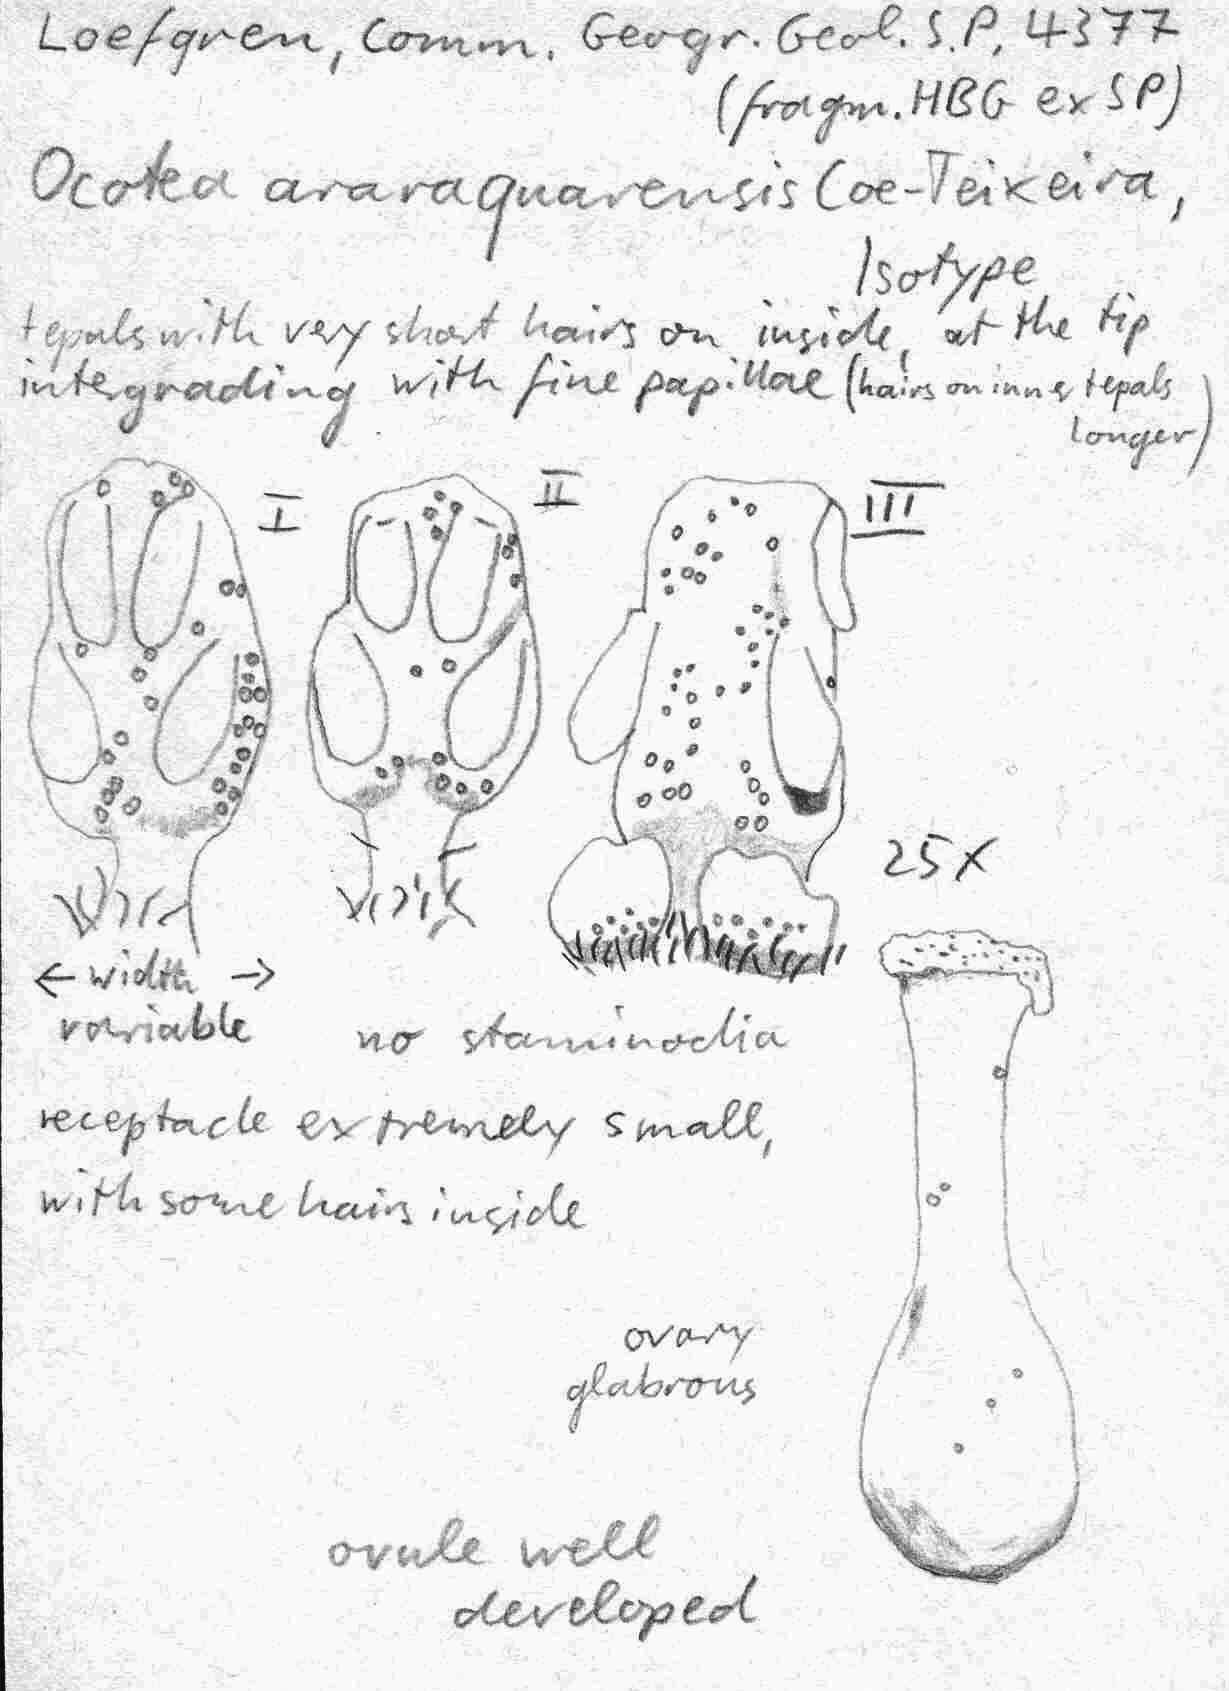 Loefgren, Comm. Geogr. Geol. S.P. 4377
(fragm. HBG ex SP)
Ocotea araraquarensis Coe-Teixeira,
Isotype
tepals with very short hairs on inside, at the tip
intergrading with fine papillae (hairs on inner tepals
longer)
I
II
III
25x
← width →
variable
no staminodia
receptacle extremely small,
with some hairs inside
ovary
glabrous
ovule well
developed